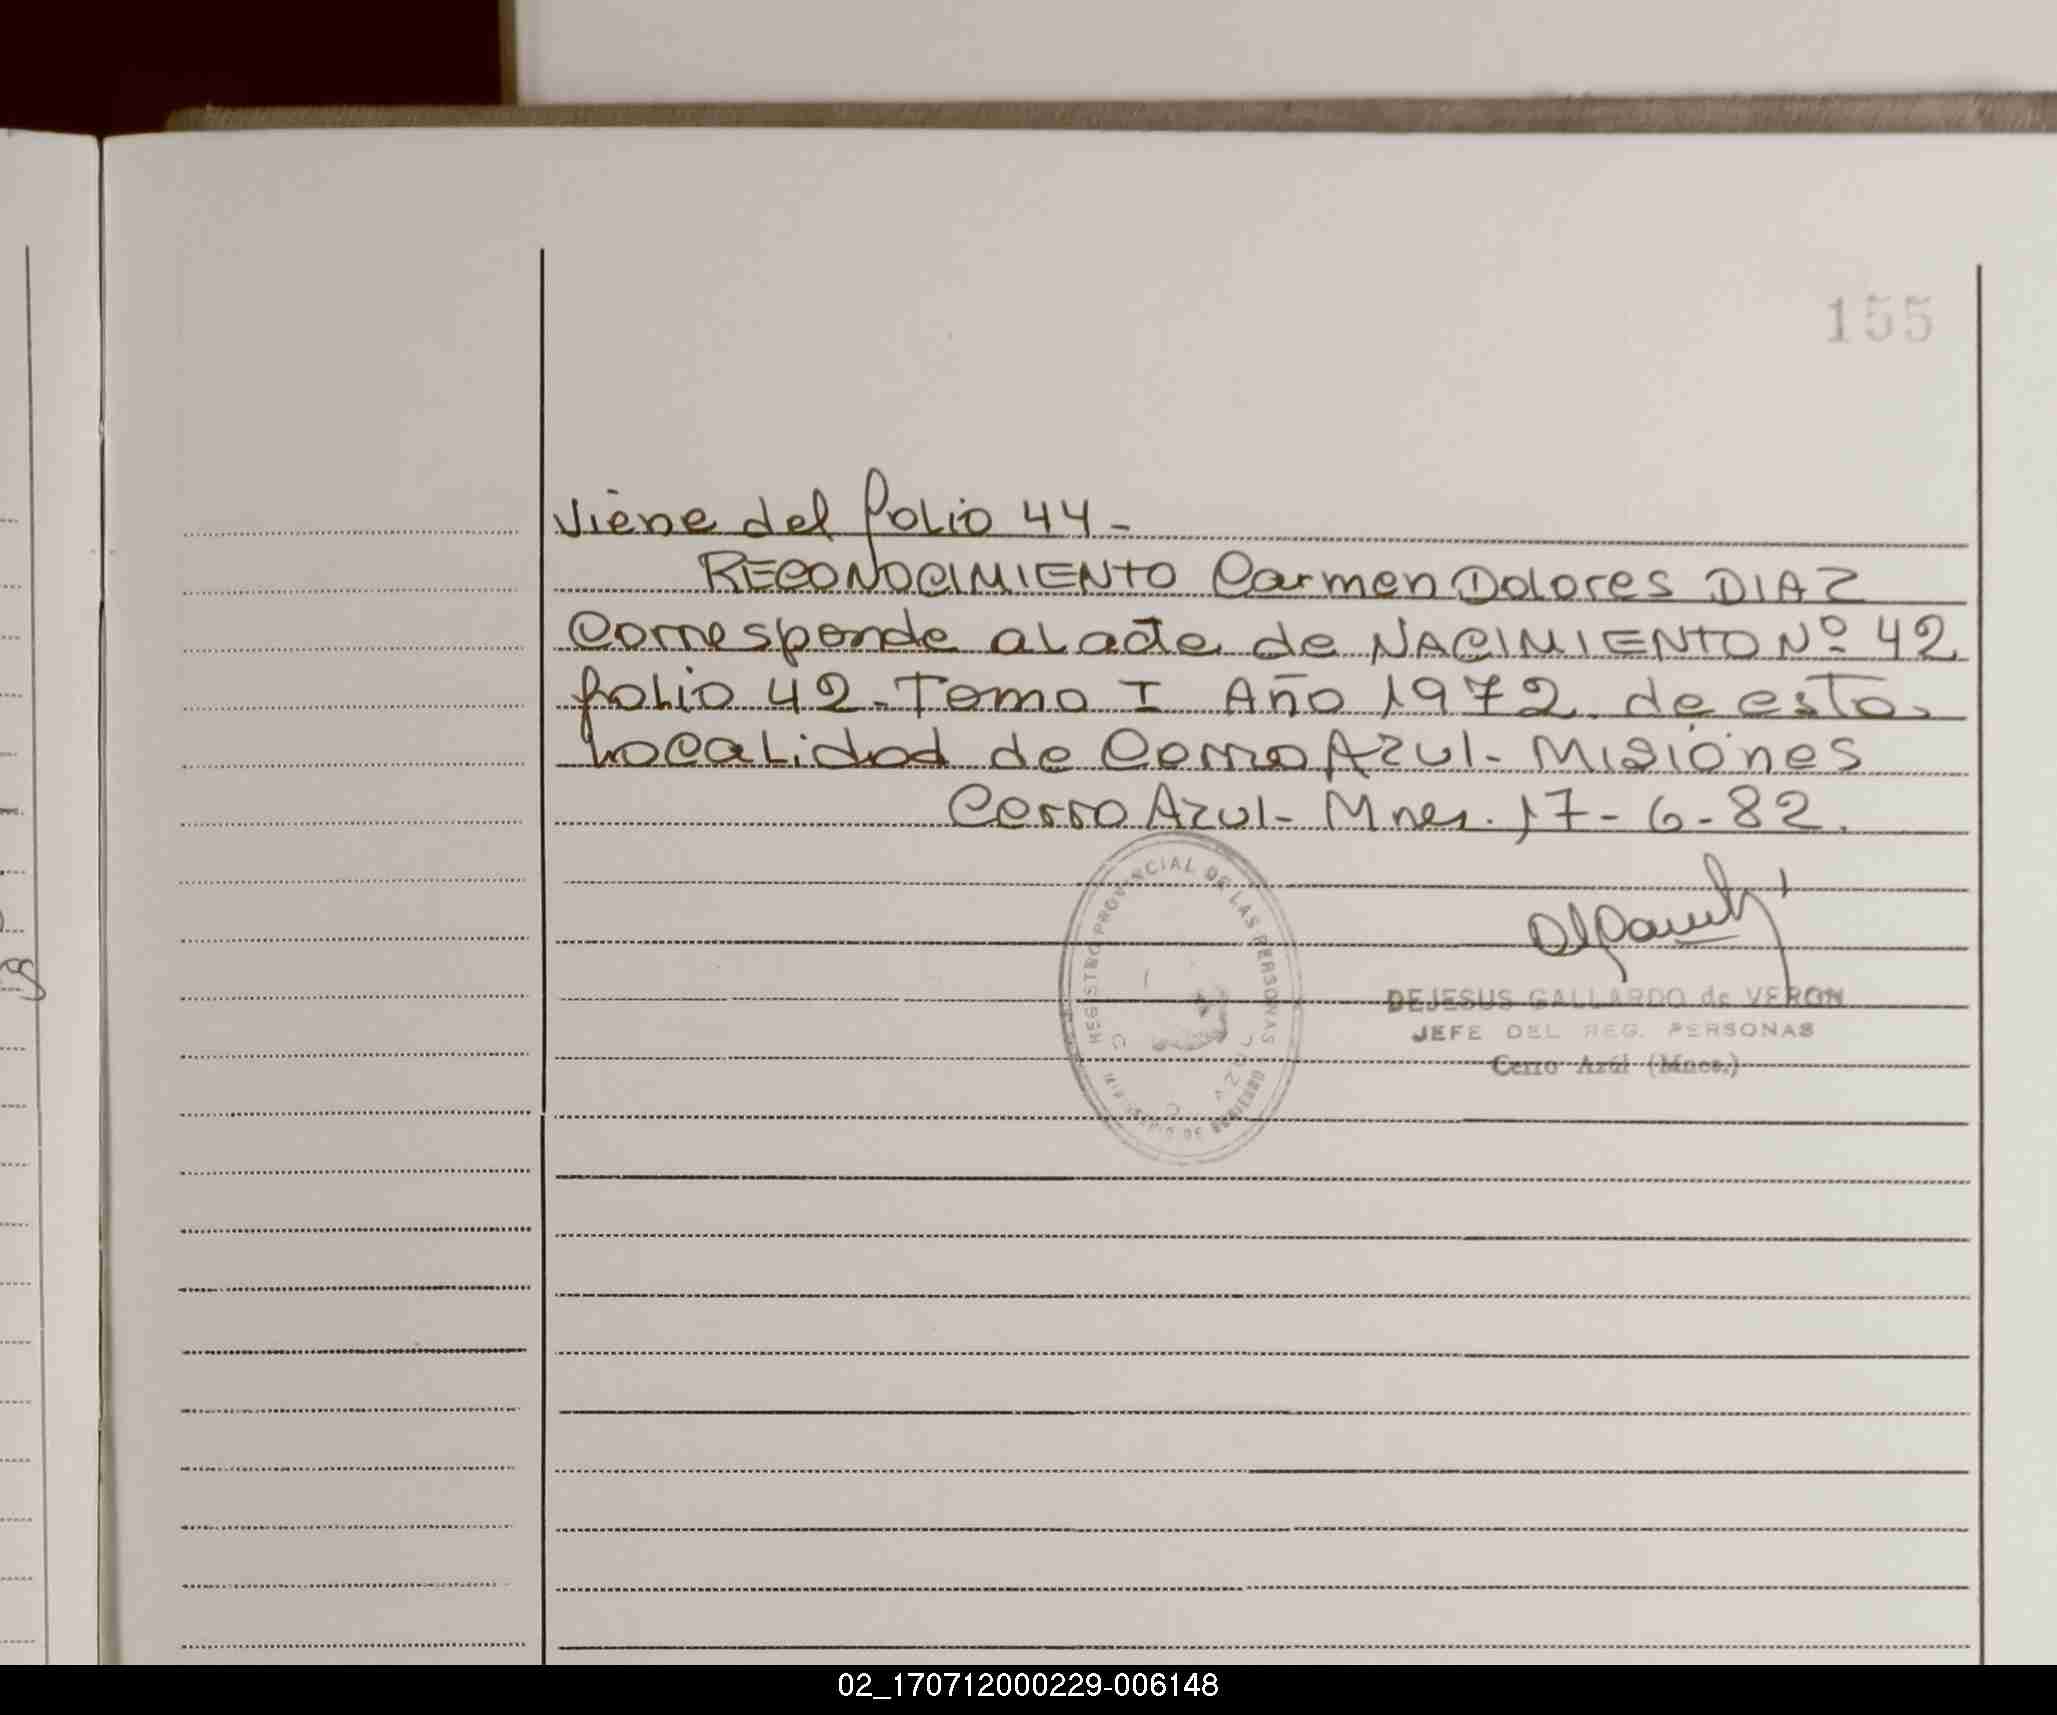 155
Viene del folio 44-
RECONOCIMIENTO Carmen Dolores DIAZ
Corresponde al acta de NACIMIENTO Nº 42
folio 42-Tomo I Año 1972 de esta
Localidad de Cerro Azul- Misiones
Cerro Azul- Mnes. 17-6-82.
REGISTRO PROVINCIAL DE LAS PERSONAS
AZUL
DEJESUS GALLARDO de VERON
JEFE DEL REG. PERSONAS
Cerro Azul (Mnes.)
02_170712000229-006148